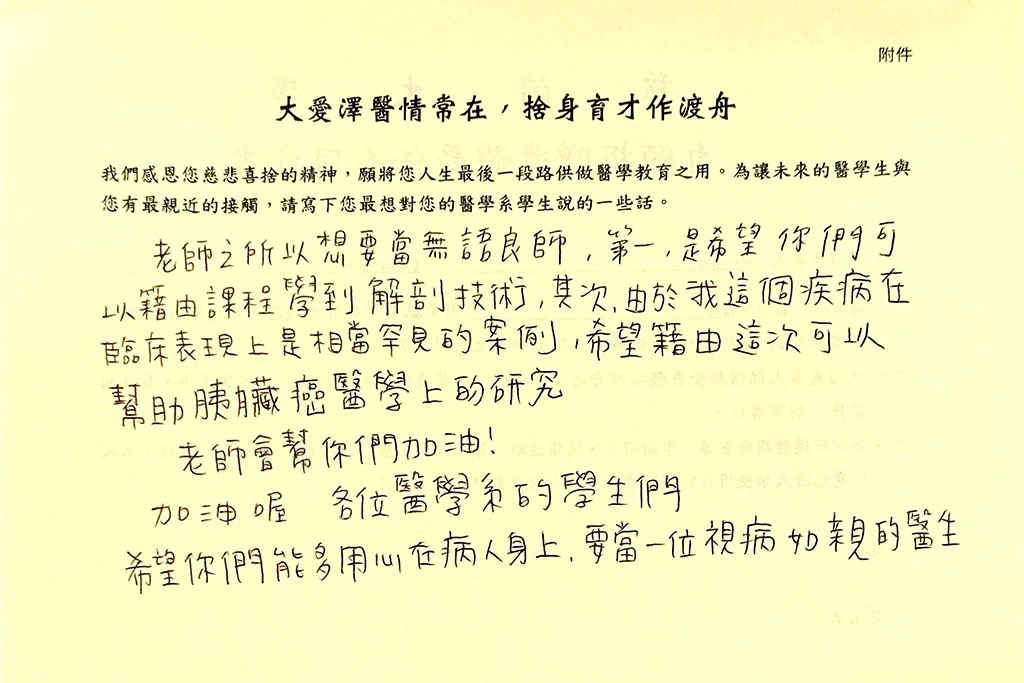 附件
大愛澤醫情常在，捨身育才作渡舟
我們感恩您慈悲喜捨的精神，願將您人生最後一段路供做醫學教育之用。為讓未來的醫學生與
您有最親近的接觸，請寫下您最想對您的醫學系學生說的一些話。
老師之所以想要當無語良師，第一，是希望你們可
以籍由課程學到解剖技術，其次，由於我這個疾病在
臨床表現上是相當罕見的案例，希望籍由這次可以
幫助胰臟癌醫學上的研究
老師會幫你們加油！
加油喔 各位醫學系的學生們
希望你們能多用心在病人身上，要當一位視病如親的醫生